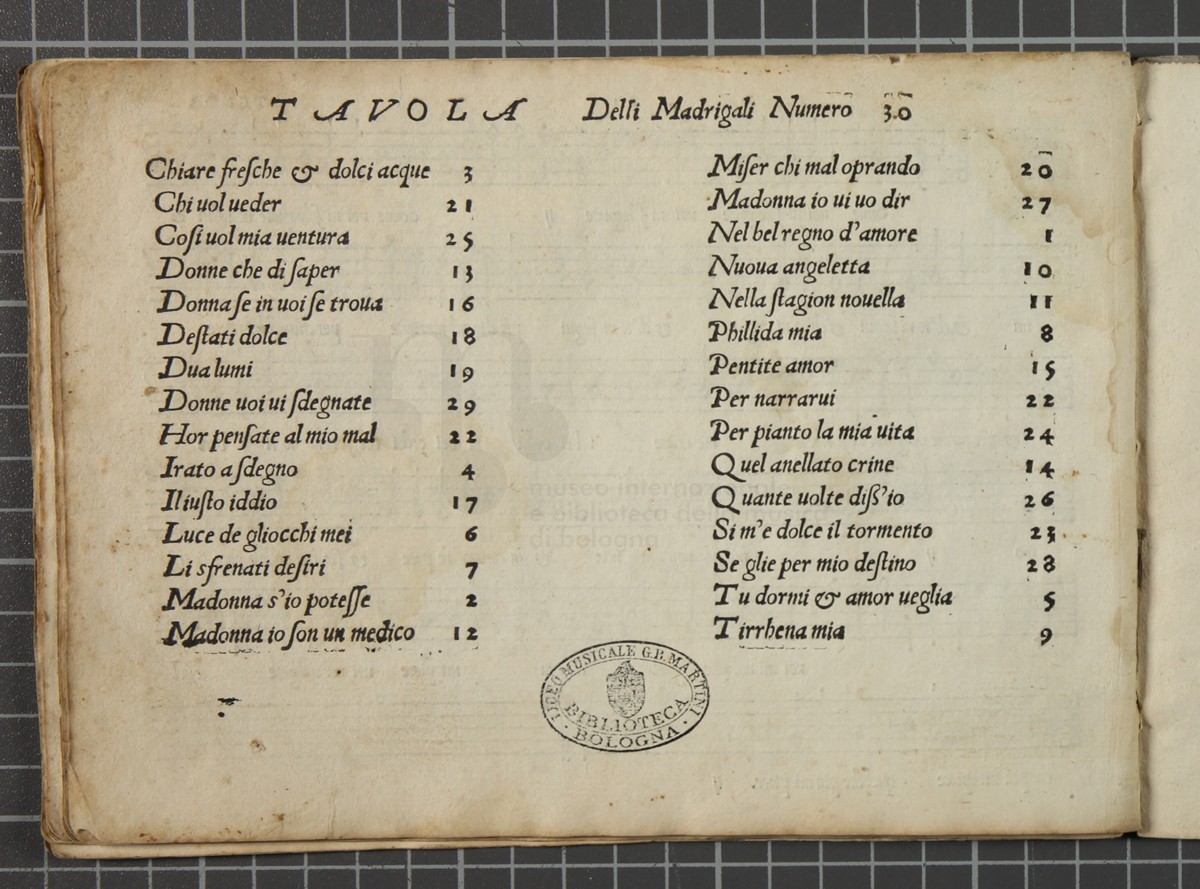 TAVOLA Delli Madrigali Numero 30
Chiare fresche & dolci acque 3
Chi uol ueder 21
Cosi uol mia uentura 25
Donne che di saper 13
Donna se in uoi se troua 16
Destati dolce 18
Dua lumi 19
Donne uoi ui sdegnate 29
Hor pensate al mio mal 22
Irato a sdegno 4
Il iusto iddio 17
Luce de gliocchi mei 6
Li sfrenati desiri 7
Madonna s'io potesse 2
Madonna io son un medico 12
Miser chi mal oprando 20
Madonna io ui uo dir 27
Nel bel regno d'amore 1
Nuoua angeletta 10
Nella stagion nouella 11
Phillida mia 8
Pentite amor 15
Per narrarui 22
Per pianto la mia uita 24
Quel anellato crine 14
Quante uolte diss'io 26
Si m'e dolce il tormento 23
Se glie per mio destino 28
Tu dormi & amor ueglia 5
Tirrhena mia 9
museo internazionale
e biblioteca della musica
di bologna
LICEO MUSICALE G.B. MARTINI
BIBLIOTECA
BOLOGNA